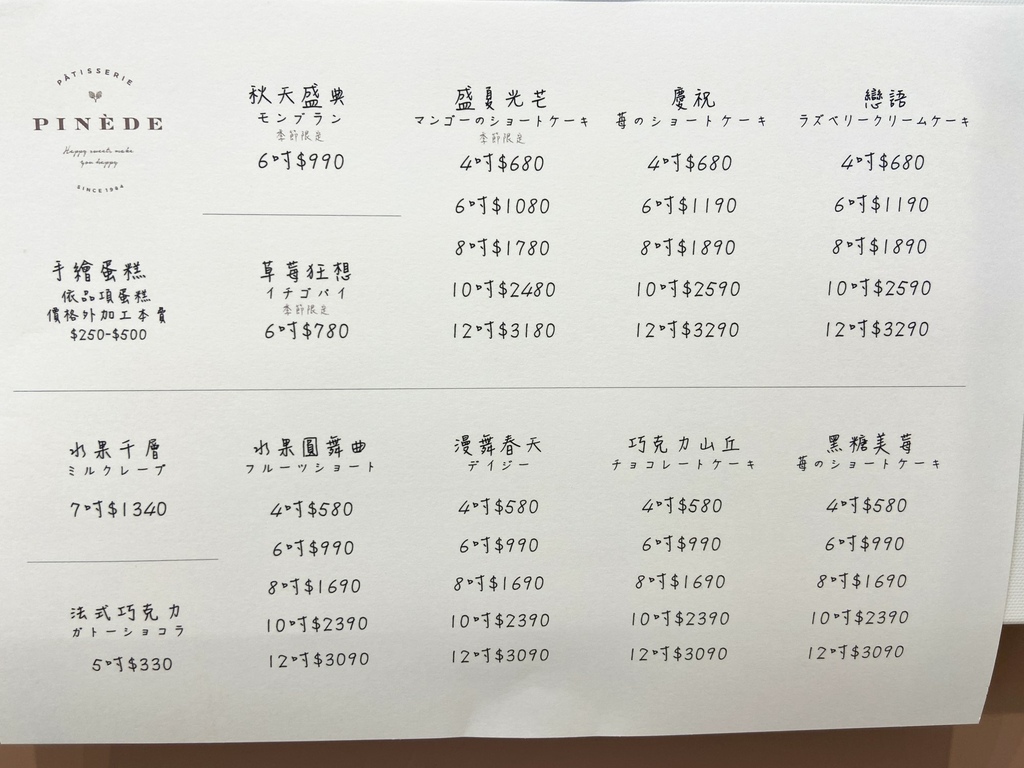 PÂTISSERIE
PINÈDE
Happy sweets make
you happy
SINCE 1984
手繪蛋糕
依品項蛋糕
價格外加工本費
$250-$500
秋天盛典
モンブラン
季節限定
6吋$990
草莓狂想
イチゴパイ
季節限定
6吋$780
盛夏光芒
マンゴーのショートケーキ
季節限定
4吋$680
6吋$1080
8吋$1780
10吋$2480
12吋$3180
慶祝
苺のショートケーキ
4吋$680
6吋$1190
8吋$1890
10吋$2590
12吋$3290
戀語
ラズベリークリームケーキ
4吋$680
6吋$1190
8吋$1890
10吋$2590
12吋$3290
水果千層
ミルクレープ
7吋$1340
法式巧克力
ガトーショコラ
5吋$330
水果圓舞曲
フルーツショート
4吋$580
6吋$990
8吋$1690
10吋$2390
12吋$3090
漫舞春天
デイジー
4吋$580
6吋$990
8吋$1690
10吋$2390
12吋$3090
巧克力山丘
チョコレートケーキ
4吋$580
6吋$990
8吋$1690
10吋$2390
12吋$3090
黑糖美莓
苺のショートケーキ
4吋$580
6吋$990
8吋$1690
10吋$2390
12吋$3090